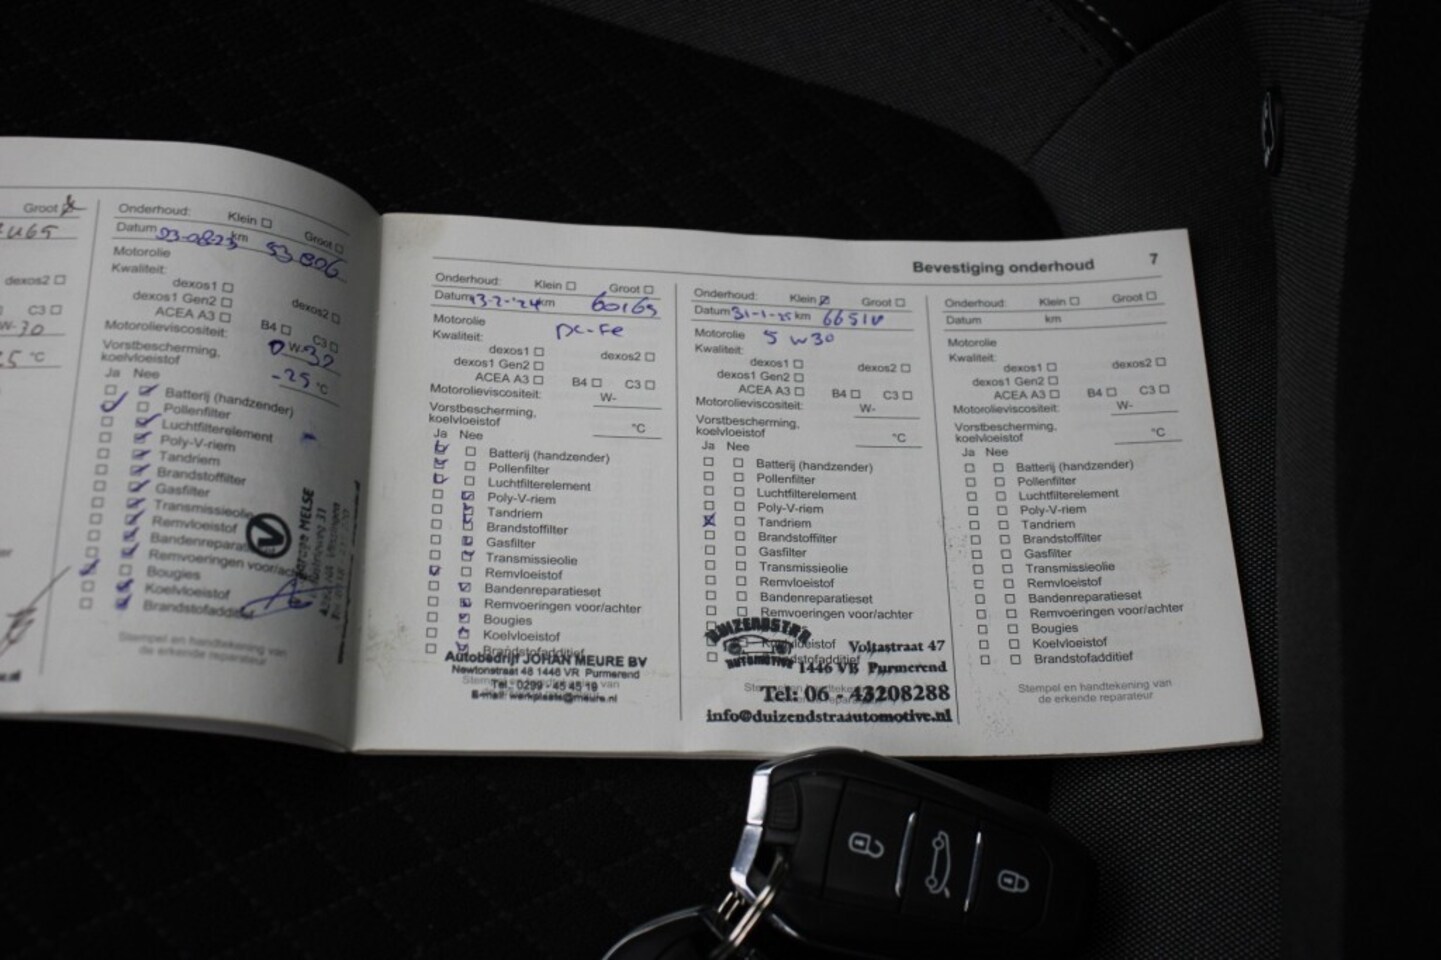 Groot
dexos2
C3
W-30
°C
Onderhoud: Klein Groot
Datum 03-08-23 km 53806
Motorolie
Kwaliteit:
dexos1 dexos2
dexos1 Gen2
ACEA A3 B4 C3
Motorolieviscositeit: W-
Vorstbescherming,
koelvloeistof -25 °C
Ja Nee
Batterij (handzender)
Pollenfilter
Luchtfilterelement
Poly-V-riem
Tandriem
Brandstoffilter
Gasfilter
Transmissieolie
Remvloeistof
Bandenreparatieset
Remvoeringen voor/achter
Bougies
Koelvloeistof
Brandstofadditief
Stempel en handtekening van
de erkende reparateur
Garage MELSE
Bevestiging onderhoud 7
Onderhoud: Klein Groot
Datum 13-2-'24 km 60165
Motorolie
Kwaliteit:
dexos1 dexos2
dexos1 Gen2
ACEA A3 B4 C3
Motorolieviscositeit: W-
Vorstbescherming,
koelvloeistof °C
Ja Nee
Batterij (handzender)
Pollenfilter
Luchtfilterelement
Poly-V-riem
Tandriem
Brandstoffilter
Gasfilter
Transmissieolie
Remvloeistof
Bandenreparatieset
Remvoeringen voor/achter
Bougies
Koelvloeistof
Brandstofadditief
Autobedrijf JOHAN MEURE BV
Newtonstraat 48 1446 VR Purmerend
Tel.: 0299 - 45 45 19
E-mail: werkplaats@meure.nl
Onderhoud: Klein Groot
Datum 31-1-25 km 66510
Motorolie 5 W30
Kwaliteit:
dexos1 dexos2
dexos1 Gen2
ACEA A3 B4 C3
Motorolieviscositeit: W-
Vorstbescherming,
koelvloeistof °C
Ja Nee
Batterij (handzender)
Pollenfilter
Luchtfilterelement
Poly-V-riem
Tandriem
Brandstoffilter
Gasfilter
Transmissieolie
Remvloeistof
Bandenreparatieset
Remvoeringen voor/achter
Koelvloeistof
Brandstofadditief
DUIZENDSTRA
AUTOMOTIVE
Voltastraat 47
1446 VB Purmerend
Tel: 06 - 43208288
info@duizendstraautomotive.nl
Onderhoud: Klein Groot
Datum km
Motorolie
Kwaliteit:
dexos1 dexos2
dexos1 Gen2
ACEA A3 B4 C3
Motorolieviscositeit: W-
Vorstbescherming,
koelvloeistof °C
Ja Nee
Batterij (handzender)
Pollenfilter
Luchtfilterelement
Poly-V-riem
Tandriem
Brandstoffilter
Gasfilter
Transmissieolie
Remvloeistof
Bandenreparatieset
Remvoeringen voor/achter
Bougies
Koelvloeistof
Brandstofadditief
Stempel en handtekening van
de erkende reparateur